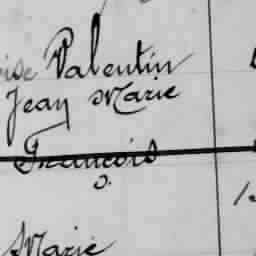 Valentin
Jean Marie
François
Marie